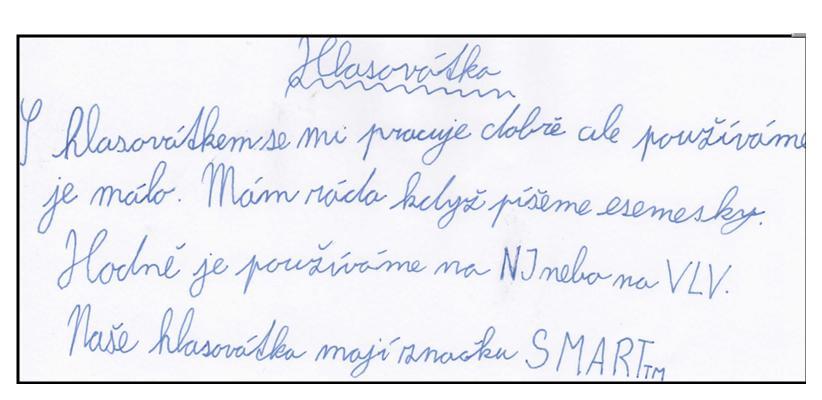 Hlasovátka
S hlasovátkem se mi pracuje dobře ale používáme
je málo. Mám ráda když píšeme esemesky.
Hodně je používáme na NJ nebo na VLV.
Naše hlasovátka mají značku SMART™